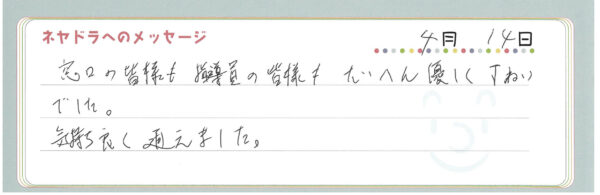 ネヤドラへのメッセージ 4月 14日
窓口の皆様も 指導員の皆様も たいへん優しくすねい
でした。
気持ち良く通えました。